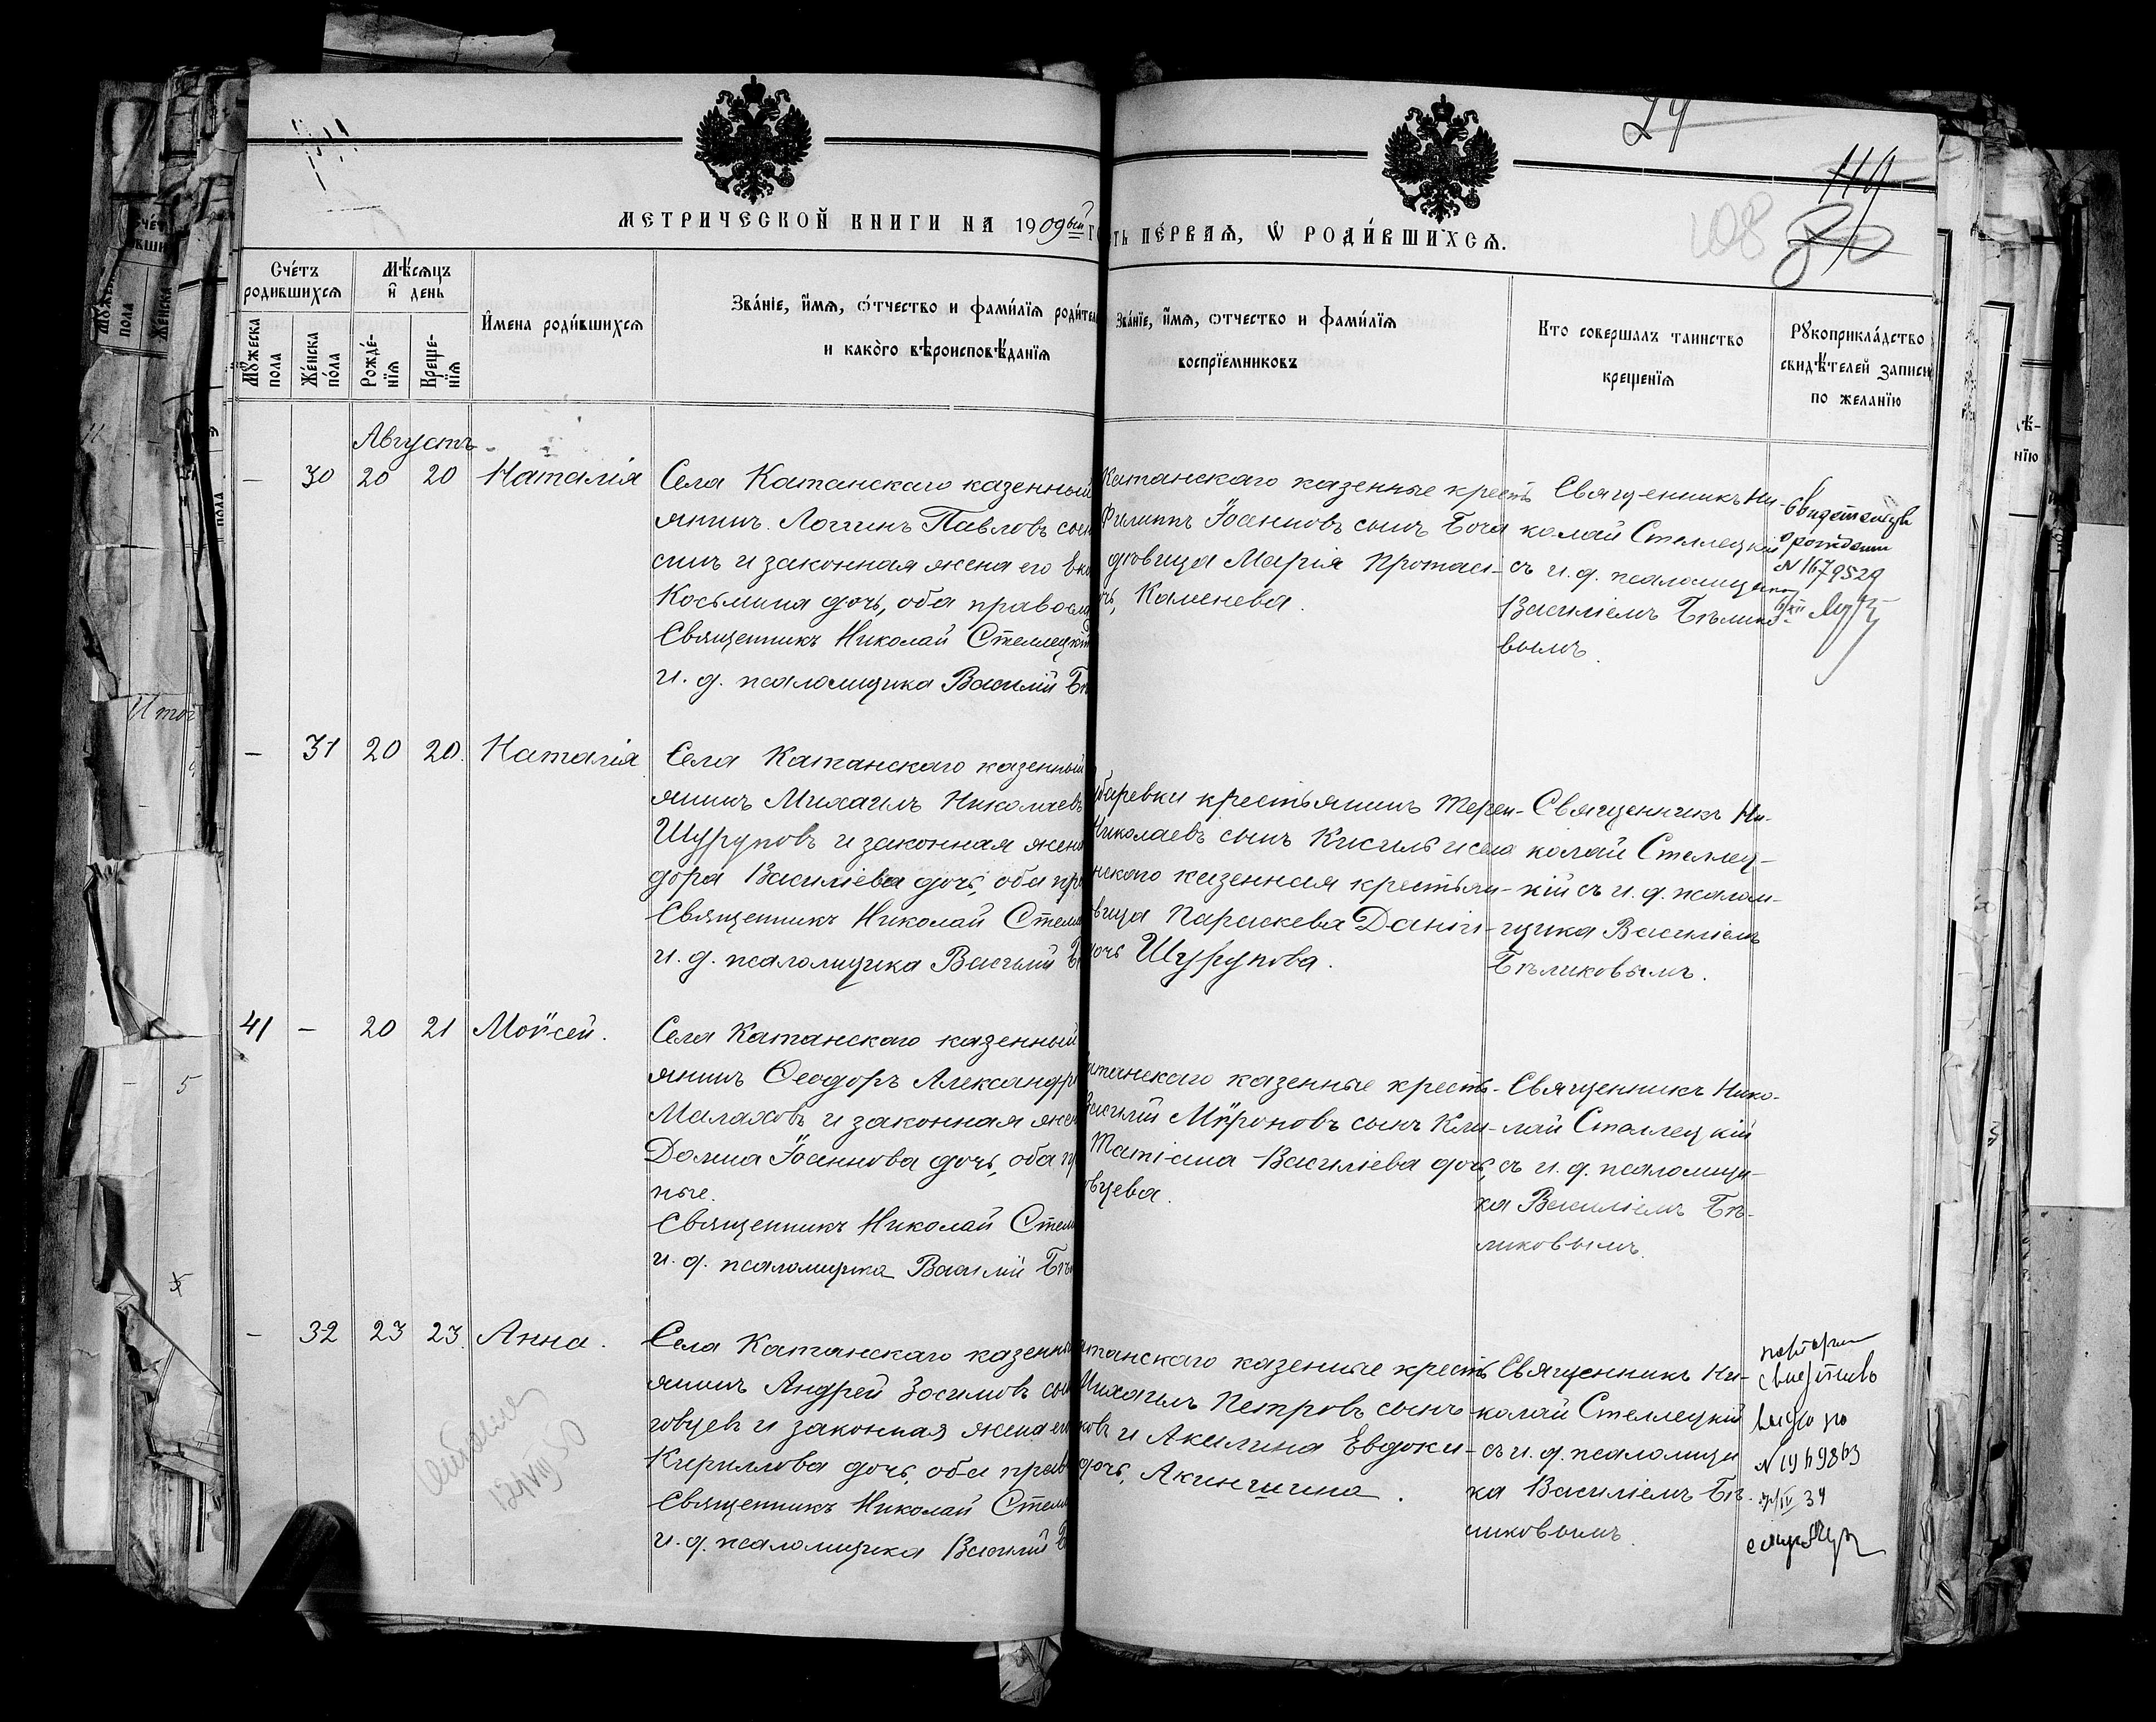 24
119
108
80
МЕТРИЧЕСКОЙ КНИГИ НА 1909ый Г
ТЬ ПЕ́РВАѦ, Ѡ РОДИ́ВШИХСѦ.
Сче́тъ родившихсѧ
Мꙋжеска пола
Же́нска по́ла
Мѣ́сѧцъ и҆ день
Рожде́-нїѧ
Креще-нїѧ
И҆мена роди́вшихсѧ
Зва́нїе, и҆́мѧ, ѻ҆́тчество и фами́лїѧ роди́тел
и како̀го вѣроисповѣ́данїѧ
Зва́нїе, и҆́мѧ, ѻтчество и фами́лїѧ
воспрїе́мниковъ
Кто соверша́лъ таинство
креще́нїѧ
Рꙋкоприкла́дство
свидѣ́телей записи
по жела́нїю
Августъ
— 30 20 20 Наталія
Села Катанскаго казенный
янинъ Логгинъ Павловъ сын
синъ и законная жена его Вк
Косьмина дочь, оба правосла
Священникъ Николай Стеллецкій
и. д. псаломщика Василій Бѣ
Катанскаго казенные кресть
Филиппъ Іоанновъ сынъ Боча
дювица Марія Протасі-
чь, Каменева.
Священникъ Ни-
колай Стеллецкій
съ и. д. псаломщика
Василіемъ Бѣлико-
вымъ.
Свидетельств
о рождении
N 1679529
— 31 20 20. Наталія
Села Катанскаго казенный
янинъ Михаилъ Николаевъ
Шуруповъ и законная жена
дора Василіева дочь, оба пра
Священникъ Николай Стелл
и. д. псаломщика Василій Бѣ
баревки крестьянинъ Терен-
Николаевъ сынъ Кисиль и села
нскаго казенная крестьян-
вица Параскева Даніи-
дочь Шурупова.
Священникъ Ни-
колай Стеллец-
кій съ и. д. псалом-
щика Василіемъ
Бѣликовымъ.
41 — 20 21 Моѵсей.
Села Катанскаго казенный
янинъ Ѳеодоръ Александр
Малаховъ и законная жен
Домна Іоаннова дочь, оба пр
ные.
Священникъ Николай Стелл
и. д. псаломщика Василій Бѣл
атанскаго казенные кресть-
Василій Мѵроновъ сынъ Кли-
Татіана Василіева дочь,
овцева.
Священникъ Нико-
лай Стеллецкій
съ и. д. псаломщи-
ка Василіемъ Бѣ-
ликовымъ.
— 32 23 23. Анна.
Села Катанскаго казенны
янинъ Андрей Зосимовъ сын
говцевъ и законная жена ег
Кириллова дочь, оба прав
Священникъ Николай Стелл
и. д. псаломщика Василій Б
атанскаго казенные кресть
Михаилъ Петровъ сынъ
ковъ и Акилина Евдоки-
дочь, Акиншина.
Священникъ Ни-
колай Стеллецкій
съ и. д. псаломщи
ка Василіемъ Бѣ-
ликовымъ.